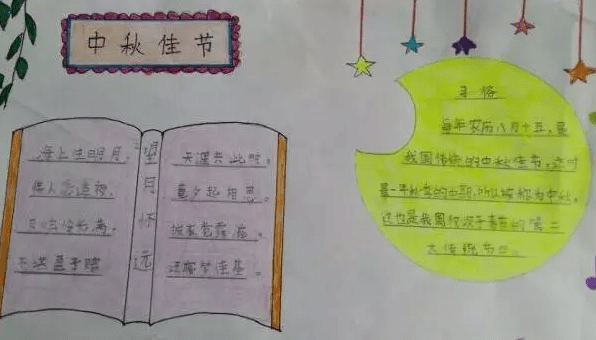 中秋佳节
海上生明月,
情人怨遥夜,
灭烛怜光满,
不堪盈手赠
望月怀远
天涯共此时。
竟夕起相思。
披衣觉露滋。
还寝梦佳期。
每年农历八月十五,是
我国传统的中秋佳节,这时
是一年秋季的中期,所以被称为中秋。
这也是我国仅次于春节的第二
大传统节日。